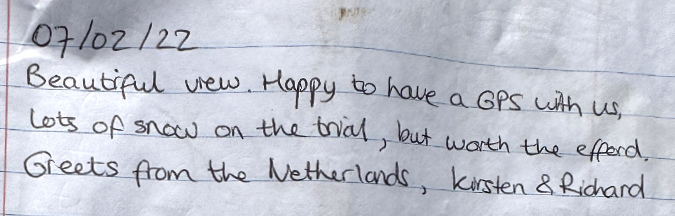 07/02/22
Beautiful view. Happy to have a GPS with us,
lots of snow on the trial, but worth the efferd.
Greets from the Netherlands, Kirsten & Richard